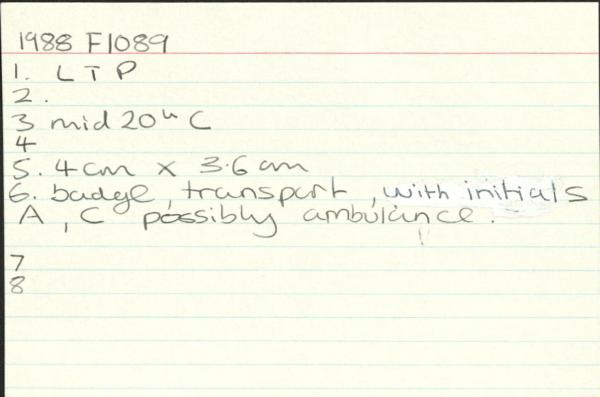 1988 F1089
1. LTP
2.
3 mid 20th C
4
5. 4cm x 3.6cm
6. badge, transport, with initials
A, C possibly ambulance.
7
8